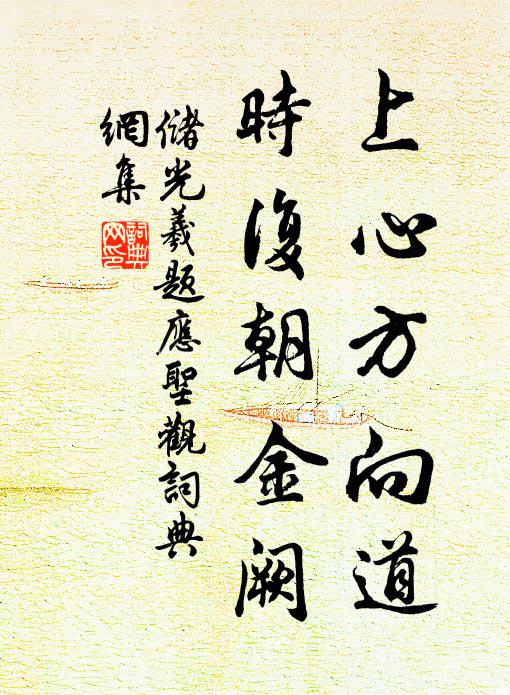 上心方向道
時復朝金闕
儲光羲題應聖觀詞典
網集
詞典
网印